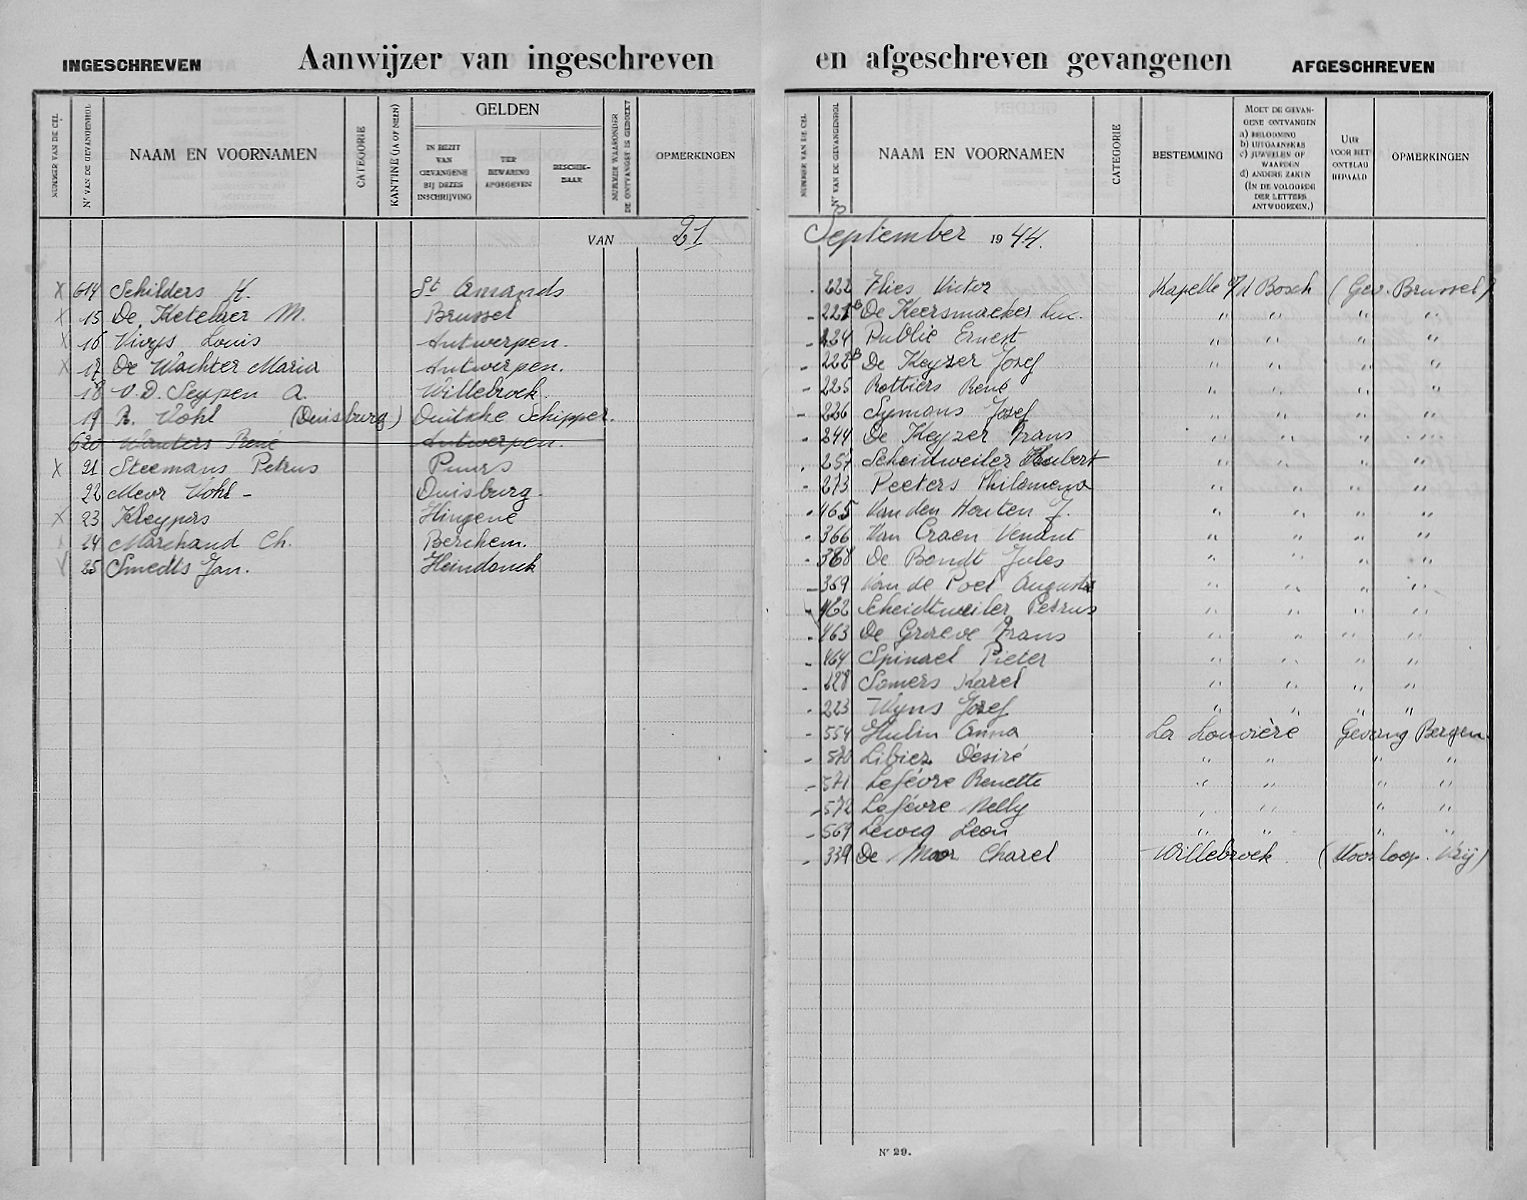 INGESCHREVEN Aanwijzer van ingeschreven en afgeschreven gevangenen AFGESCHREVEN
NUMMER VAN DE CEL
Nr VAN DE GEVANGENROL
NAAM EN VOORNAMEN
CATEGORIE
KANTINE (JA OF NEEN)
GELDEN
IN BEZIT VAN GEVANGENE BIJ DEZES INSCHRIJVING
TER BEWARING AFGEGEVEN
BESCHIK-BAAR
NUMMER WAARONDER DE ONTVANGST IS GEBOEKT
OPMERKINGEN
VAN 21
X 614 Schilders K. St Amands
X 15 De Ketelaer M. Brussel
X 16 Vivijs Louis Antwerpen.
X 17 De Wachter Maria Antwerpen.
18 V.D. Seypen A. Willebroek.
19 R. Vohl (Duisburg) Duitsche Schipper.
620 Wauters René Antwerpen.
X 21 Steemans Petrus Puurs
22 Mevr Vohl - Duisburg.
X 23 Kleypers Hingene
24 Marchand Ch. Berchem.
25 Smedts Jan. Heindonck
NUMMER VAN DE CEL
Nr VAN DE GEVANGENROL
NAAM EN VOORNAMEN
CATEGORIE
BESTEMMING
MOET DE GEVAN-
GENE ONTVANGEN
a) BELOONING
b) UITGAANSKAS
c) JUWEELEN OF WAARDEN
d) ANDERE ZAKEN
(IN DE VOLGORDE
DER LETTERS
ANTWOORDEN.)
UUR VOOR HET ONTSLAG BEPAALD
OPMERKINGEN
September 1944.
222 Flies Victor Kapelle o/d Bosch (Gev. Brussel)
221B De Keersmaeker Luc. " " " "
224 Publie Ernest " " " "
222B De Keyzer Jozef " " " "
225 Rottiers René " " " "
226 Symons Jozef " " " "
244 De Keyzer Frans " " " "
254 Scheidweiler Hubert " " " "
273 Peeters Philomena " " " "
465 Van den Houten J. " " " "
366 Van Craen Venant " " " "
368 De Bondt Jules " " " "
369 Van de Poel Augusta " " " "
462 Scheidtweiler Petrus " " " "
463 De Greeve Frans " " " "
464 Spinael Pieter " " " "
228 Somers Karel " " " "
223 Wyns Jozef " " " "
554 Hulin Anna La Louvière Gevang Bergen.
570 Libiez Désiré " " " "
571 Lefévre Renette " " " "
572 Lefévre Nelly " " " "
569 Leweg Leon " " " "
339 De Moor Charel Willebroek. (Voorloop. Vrij)
Nr 29.